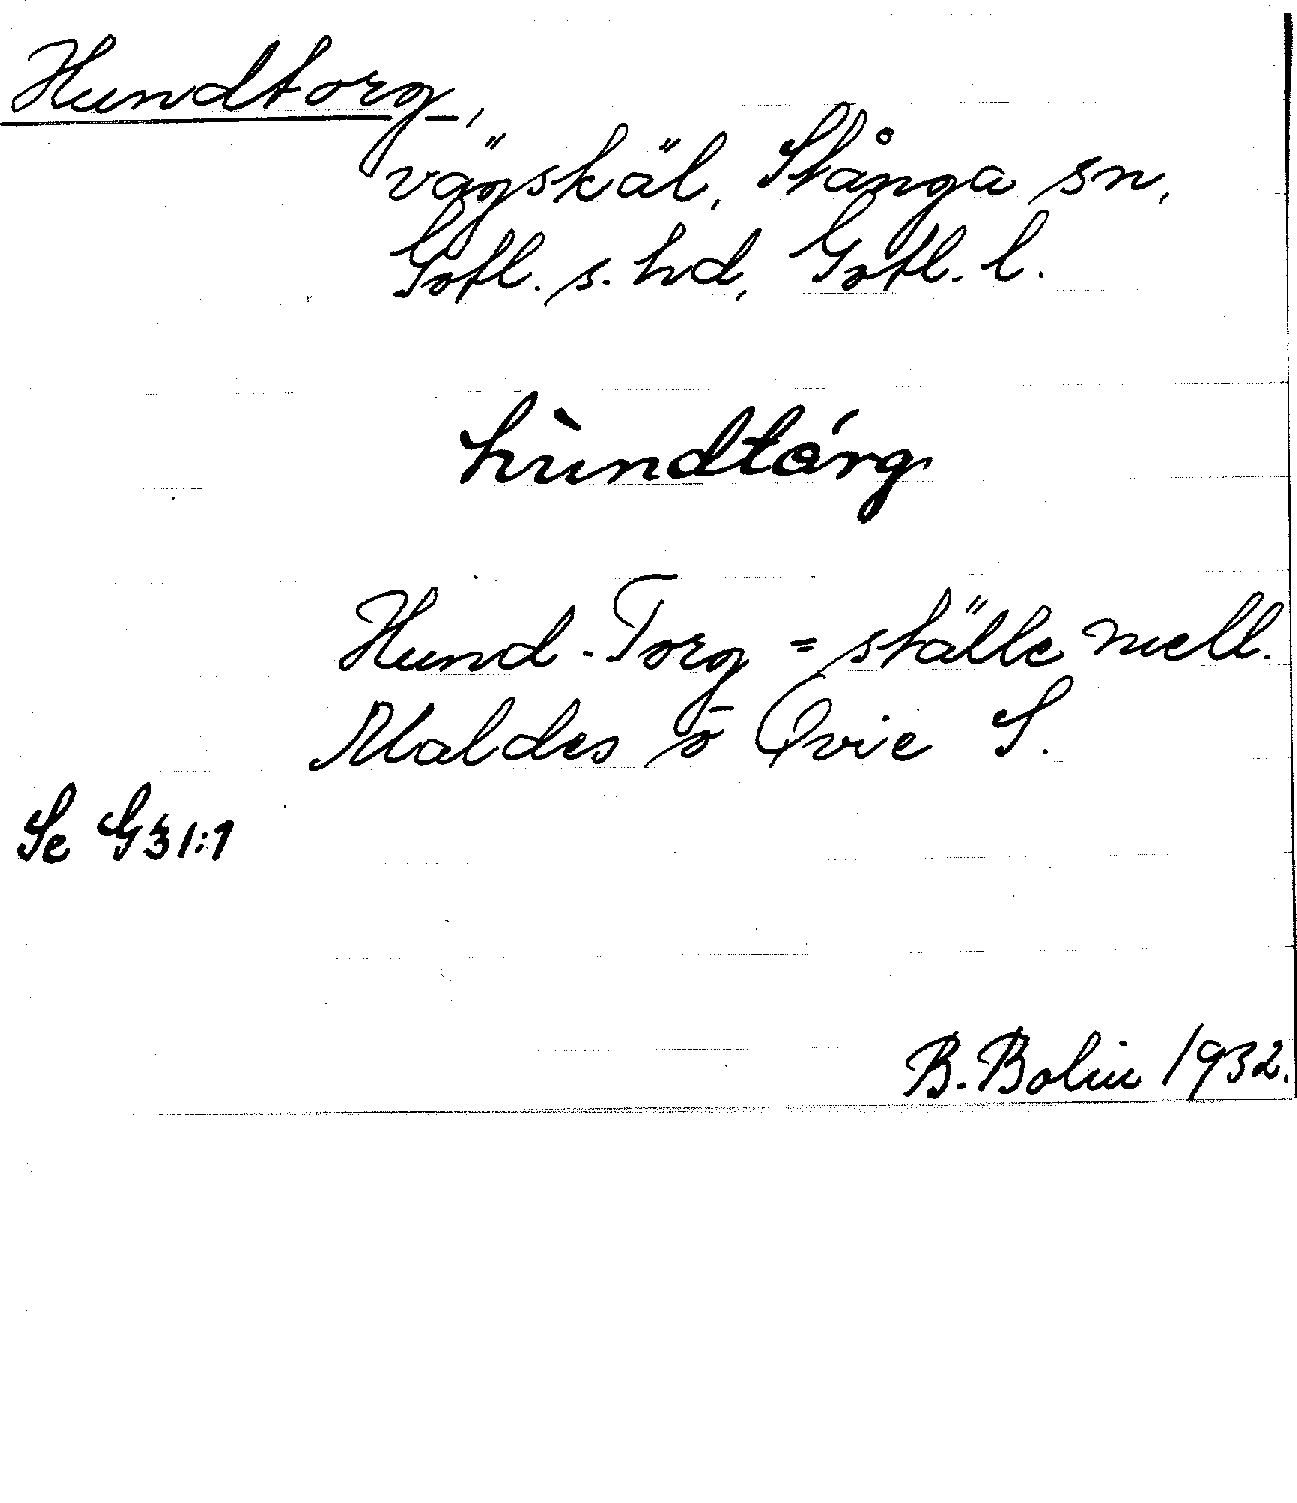 Hundtorg,
vägskäl, Stånga sn,
Gotl. s. hd, Gotl. l.
hùndtårg
Hund-Torg = ställe mell.
Maldes o Qvie S.
Se G31:1
B. Bolin 1932.